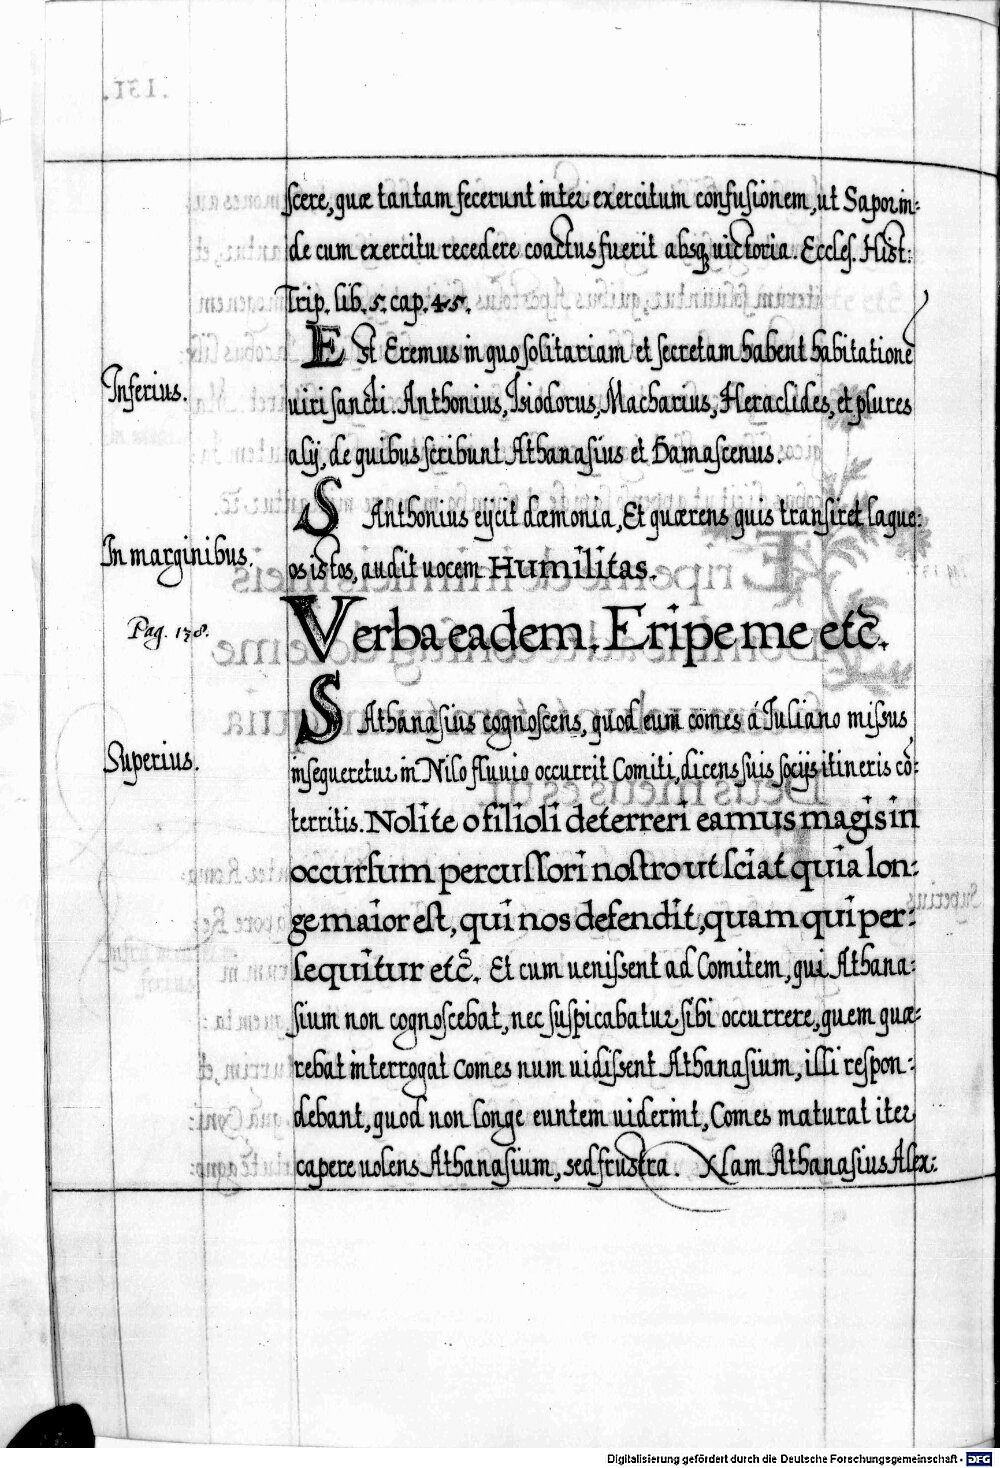 scere, quæ tantam fecerunt inter exercitum confusionem, ut Sapor in:
de cum exercitu recedere coactus fuerit absq; uictoria. Eccles. Hist:
Trip. lib. 5. cap. 45.
Est Eremus in quo solitariam et secretam habent habitatione
Inferius.
uiri sancti. Anthonius, Isiodorus, Macharius, Heraclides, et plures
alij, de quibus scribunt Athanasius et Damascenus.
S Anthonius eijcit dæmonia, Et quærens quis transiret laque:
In marginibus.
os istos, audit uocem Humilitas.
Pag. 138.
Verba eadem. Eripe me etc̃.
S Athanasius cognoscens, quod eum comes á Iuliano missus
Superius.
insequeretur in Nilo fluuio occurrit Comiti, dicens suis socijs itineris cō:
territis. Nolite o filioli deterreri eamus magis in
occursum percussori nostro ut sciat quia lon:
ge maior est, qui nos defendit, quam qui per:
sequitur etc̃. Et cum uenissent ad Comitem, qui Athana:
sium non cognoscebat, nec suspicabatur sibi occurrere, quem quæ:
rebat interrogat Comes num uidissent Athanasium, illi respon:
debant, quod non longe euntem uiderint, Comes maturat iter
capere uolens Athanasium, sed frustra. Nam Athanasius Alex:
Digitalisierung gefördert durch die Deutsche Forschungsgemeinschaft - DFG